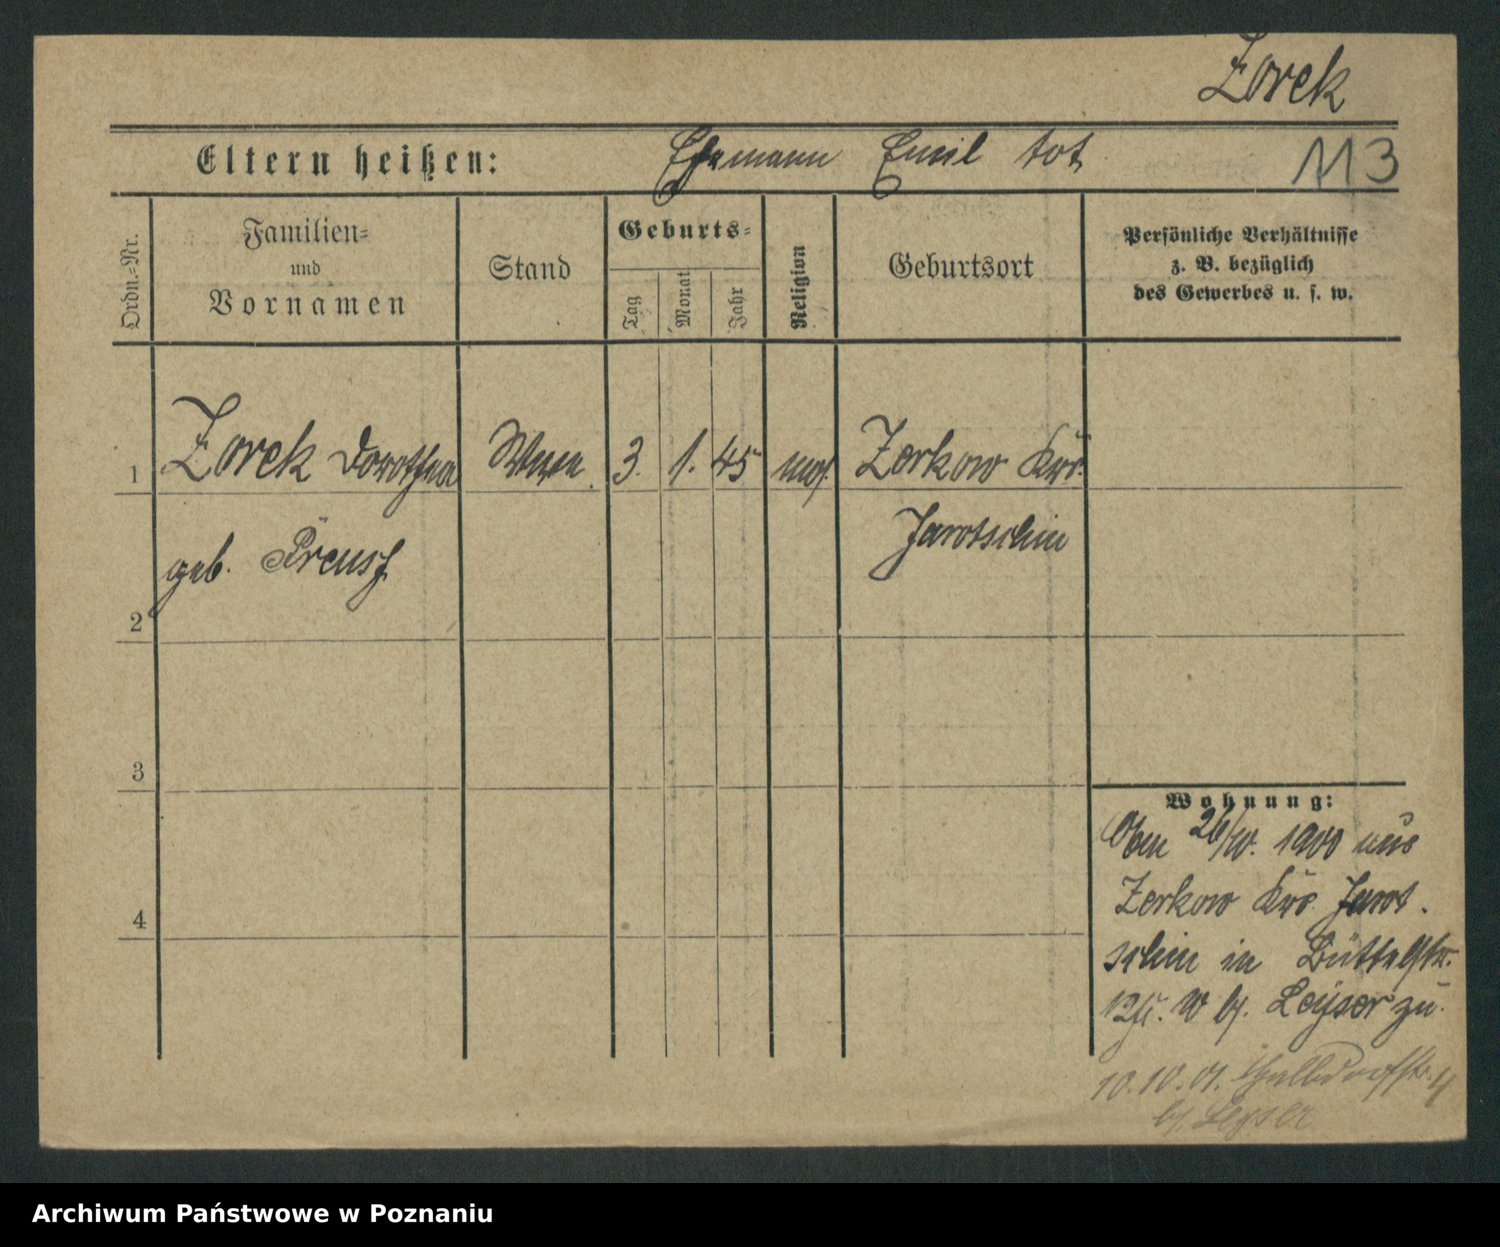 Zorek
Eltern heißen: Ehemann Emil tot 113
Ordn.-Nr. Familien- und Vornamen Stand Geburts- Tag Monat Jahr Religion Geburtsort Persönliche Verhältnisse z. B. bezüglich des Gewerbes u. s. w.
1 Zorek Dorothea Wwe 3. 1. 45 mos. Zerkow Krs.
Jarotschin
geb. Preuß
2
3
Wohnung:
26/10. 1900 aus
Zerkow Krs. Jarot.
4
schin in Büttelstr.
12 W bei Leyser zu.
10.10.01. 4
bei Leyser
Archiwum Państwowe w Poznaniu